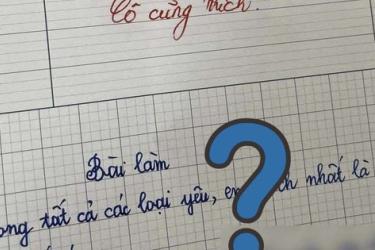 Cô cũng thích.
Bài làm
ong tất cả các loại yêu, e ch nhất là